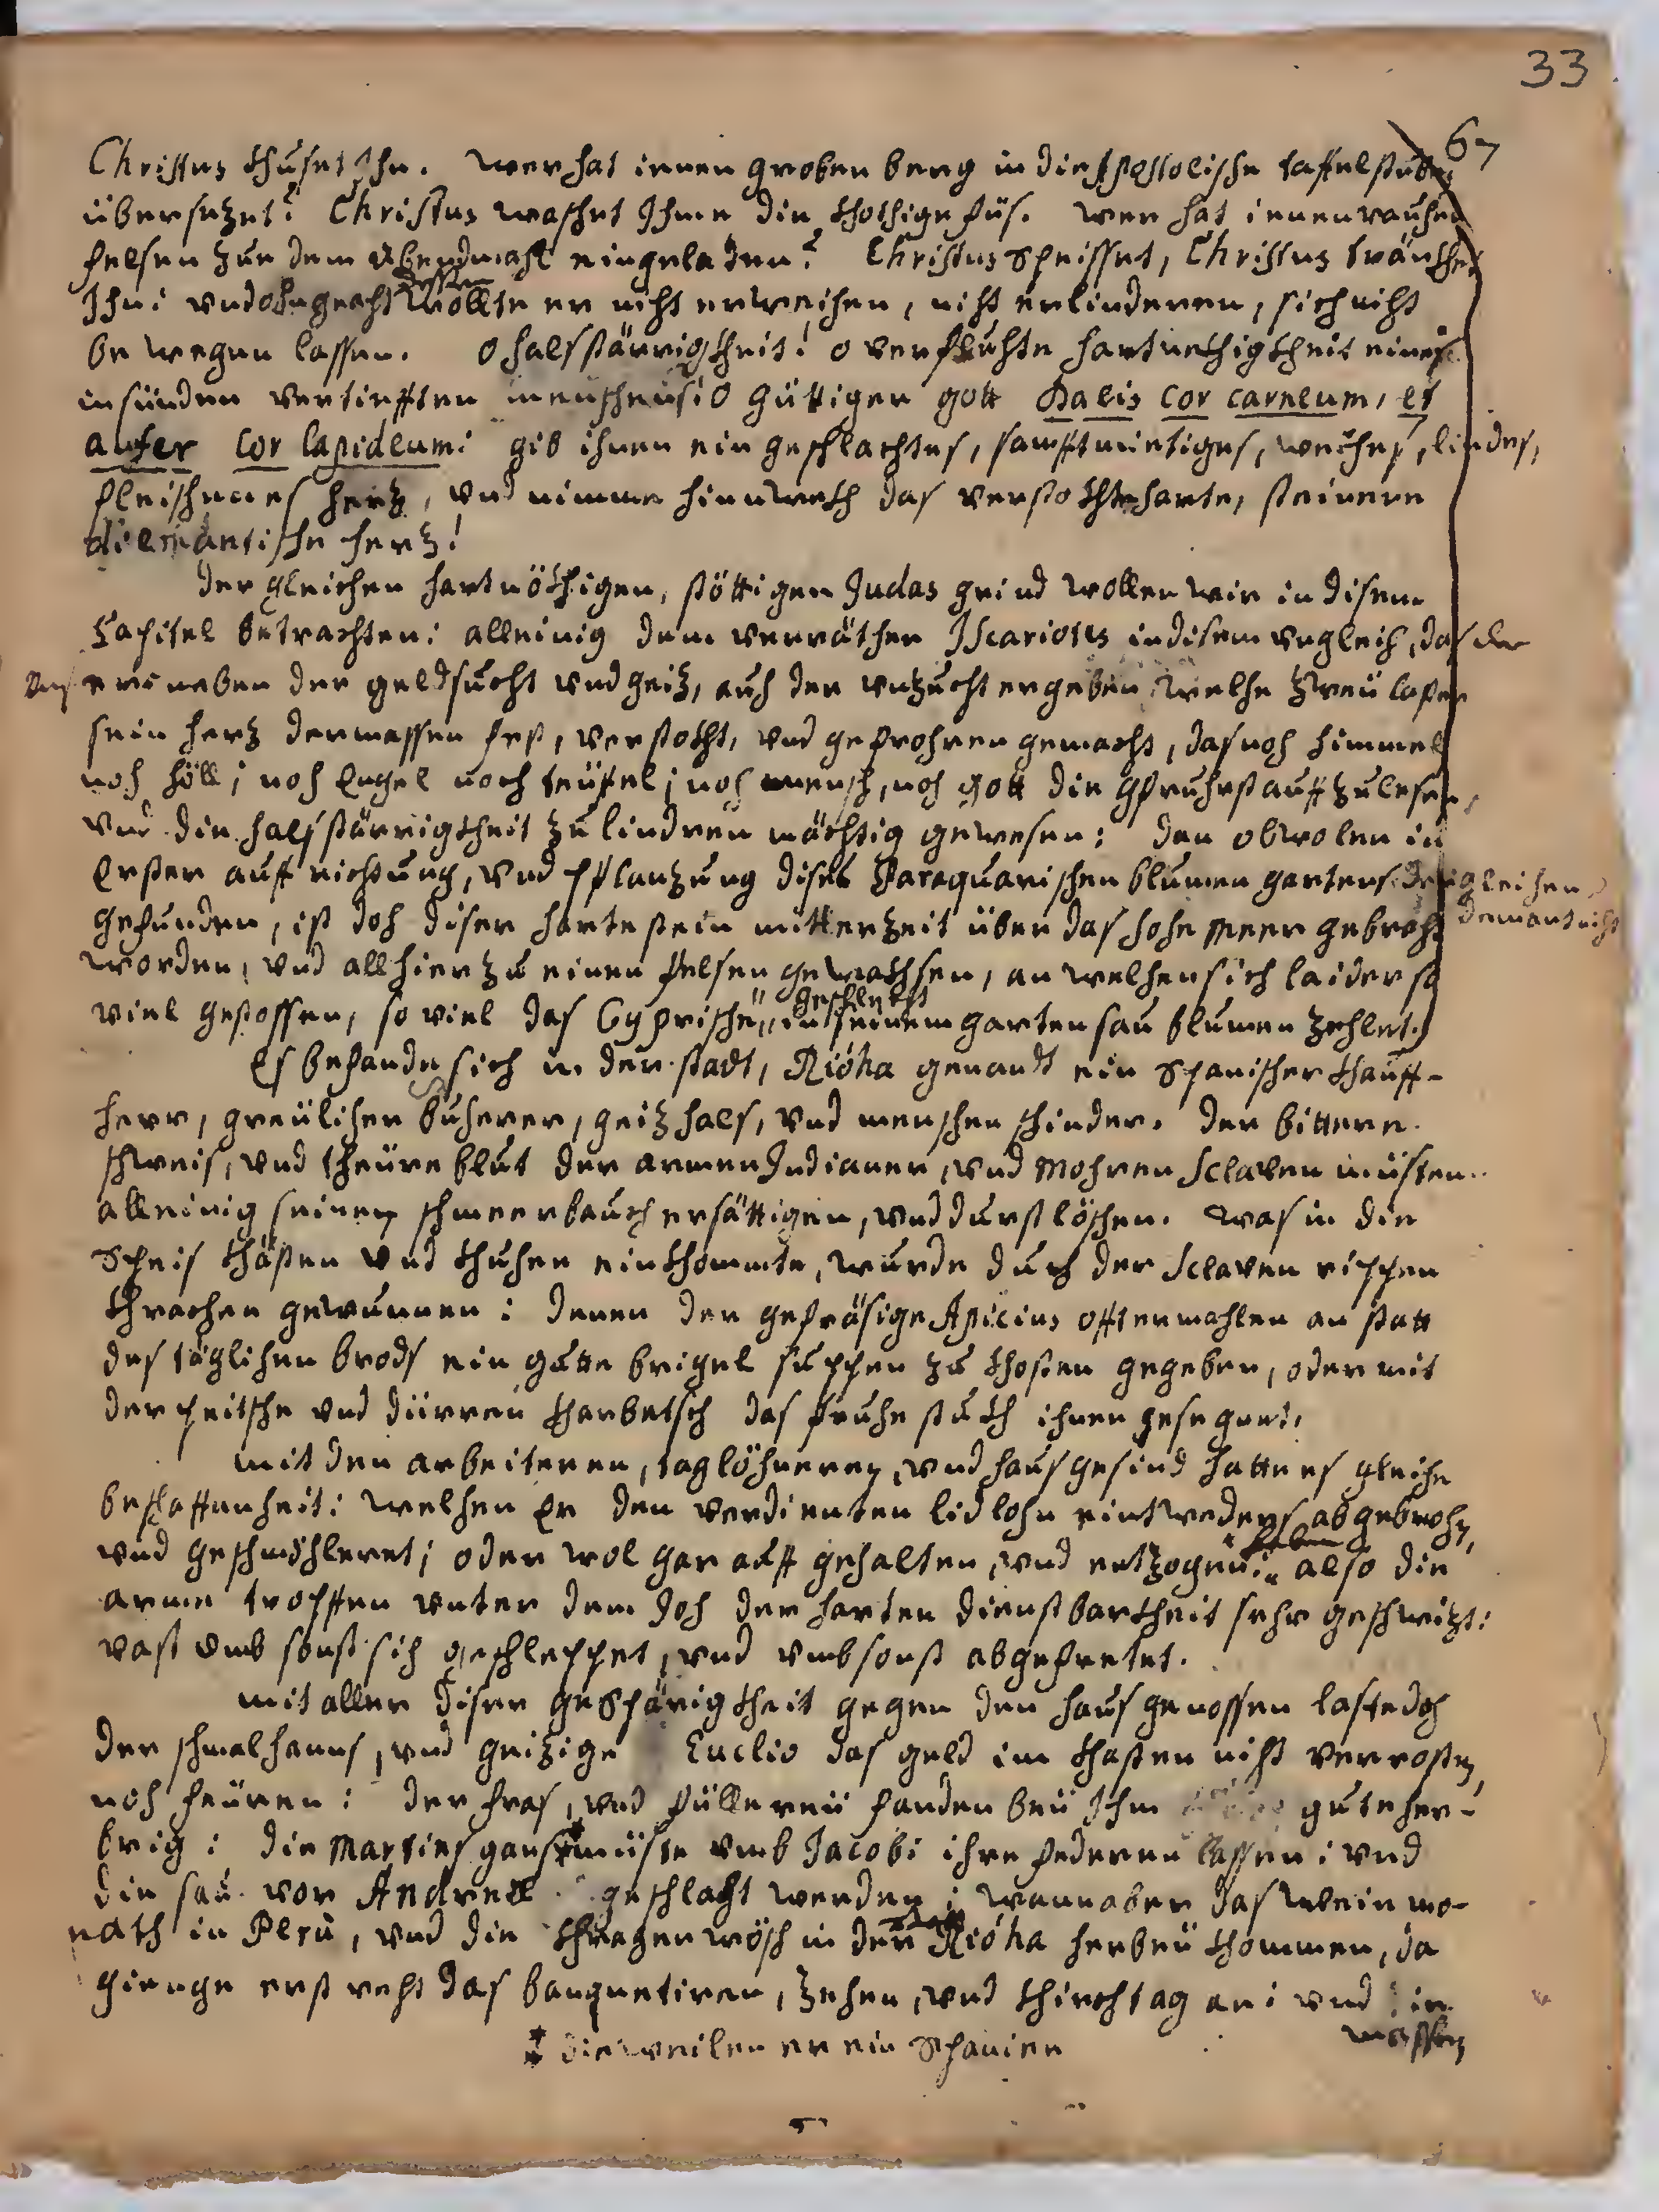 33
67
Christus khüset Ihn. Wer hat jenen groben berg in die Apostolische taffelstuben
übersezet? Christus waschet Ihme die khothige füs. Wer hat jenen rauhen
felsen zue dem Abendmahl eingeladen? Christus speisset, Christus tränkhet
dessen
Ihn: vnd ohngeacht wollte er nicht erweichen, nicht erlinderen, sich nicht
bewegen lassen. O halsstärrigkheit! o verfluchte hartnekhigkheit eines
in sünden vertiefften menschens! O güttiger gott Dabis cor carneum, et
aufer cor lapideum: gib ihnen ein geschlachtes, sanfftmietiges, weiches, lindes,
fleischenes herz, vnd nimme hinwekh das verstokhte harte, steinere
diemantische herz!
Der gleichen hartnökhigen, stöttigen Judas grind wollen wir in disem
Capitel betrachten: alleinig dem verräther Iscariotes in disem vngleich, das der
vns er neben der geldsucht vnd geiz, auch der vnzucht ergeben, welche zweü laster
sein herz dermassen fest, verstokht, vnd gefrohren gemacht, das noch himmel
noch höll; noch Engel noch teüfel; noch mensch, noch gott die gfruhrst auffzulesen,
vnd die halsstärrigkheit zu lindren mächtig gewesen: dan obwolen in
Erster auffrichtung, vnd pflanzung dises Paraquarischen blumen gartens dergleichen
demant nicht
gefunden, ist doch diser harte stein mitterzeit über das hohe Meer gebracht
worden, vnd allhier zu einen felsen gewachsen, an welchen sich laider so
geschlecht
viel gestossen, so viel das Cyprische in seinem garten sau blumen zehlet.
Es befande sich in der stadt, Rióha genandt ein Spanischer khauff-
herr, greülicher buherer, geizhals, vnd menschen schinder. Der bittere
schweis, vnd theüre blut der armen Indianer, vnd Mohren Sclaven müsten
alleinig seinen schmeerbauch ersättigen, vnd durst löschen. Was in die
Speis khästen vnd khuchen einkhommte, wurde durch der Sclaven rippen
khrachen gewunnen: denen der gefräsige Apicius offtermahlen an statt
des täglichen brods ein gutte brigel suppen zu khosten gegeben, oder mit
der peitsche vnd dürren kharbetsch das fruhestukh ihnen gesegnet.
Mit den arbeiteren, taglöhneren, vnd hausgesind hatte es gleiche
beschaffenheit: welchen Er den verdienten lidlohn eintweders abgebrochen,
haben
vnd geschmöhleret; oder wol gar auff gehalten, vnd entzogen: also die
arme tropffen vnter dem Joch der harten dienstbarkheit sehr geschwizt:
vast vmb sonst sich geschleppet, vnd vmbsonst abgefretet.
Mit aller diser gespärigkheit gegen den hausgenossen laste doch
der schmalhanns, vnd geizige Euclio das geld im khasten nicht verrosten,
noch feüren: der fras, vnd füllereü fanden beü Ihm gute her-
brig: die Martins gans * müste vmb Jacobi ihre federen lassen: vnd
die sau vor Andreæ geschlacht werden; wann aber das Wein mo-
nath in Perù, vnd die khragen wösch in der Rióha herbeü khommen, da
gienge erst recht das banquetiren, zehen, vnd khirchtag an: vnd die
massen
* dieweilen er ein Spanier